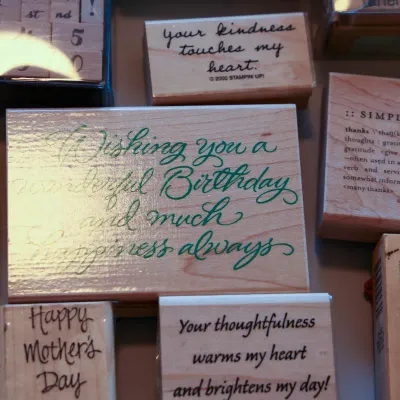 st nd !
5
your kindness
touches my
heart.
© 2000 STAMPIN' UP!
Wishing you a
wonderful Birthday
and much
happiness always
:: SIMPL
thanks
gratitude
~often used in a
verb and serv
many thanks
Happy
Mother's
Day
Your thoughtfulness
warms my heart
and brightens my day!